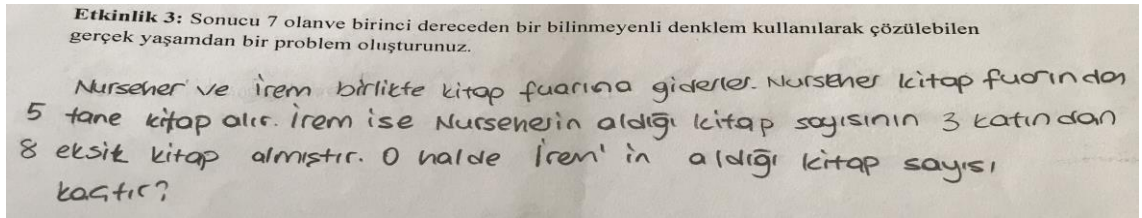 Etkinlik 3: Sonucu 7 olanve birinci dereceden bir bilinmeyenli denklem kullanılarak çözülebilen
gerçek yaşamdan bir problem oluşturunuz.
Nurseher ve İrem birlikte kitap fuarına giderler. Nurseher kitap fuarından
5 tane kitap alır. İrem ise Nurseherin aldığı kitap sayısının 3 katından
8 eksik kitap almıştır. O halde İrem'in aldığı kitap sayısı
kaçtır?